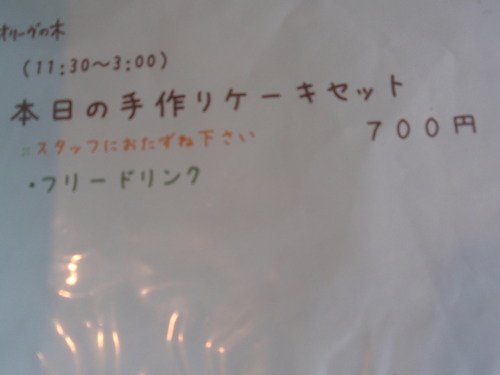 オリーヴの木
(11:30～3:00)
本日の手作りケーキセット
700円
※スタッフにおたずね下さい
・フリードリンク